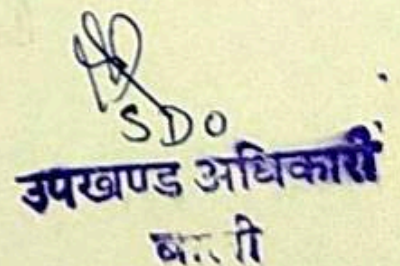 SDO
उपखण्ड अधिकारी